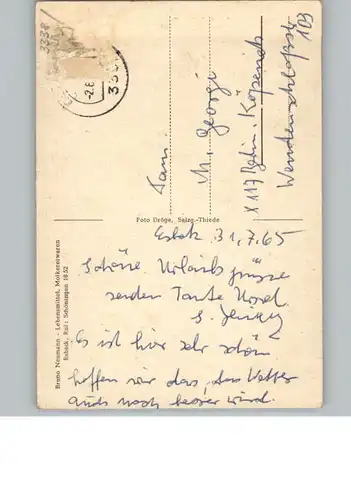 3338/
-2.8
333
Fam.
M. Georgi
X 117 Berlin-Köpenick
Wendenschloßstr
103
Foto Dröge, Salzg.-Thiede
Bruno Neumann - Lebensmittel, Molkereiwaren
Esbeck, Ruf: Schöningen 18 52
Esbek 31.7.65
Schöne Urlaubsgrüsse
senden Tante Ursel
u.
Es ist hier sehr schön
hoffen wir das, das Wetter
auch noch besser wird.